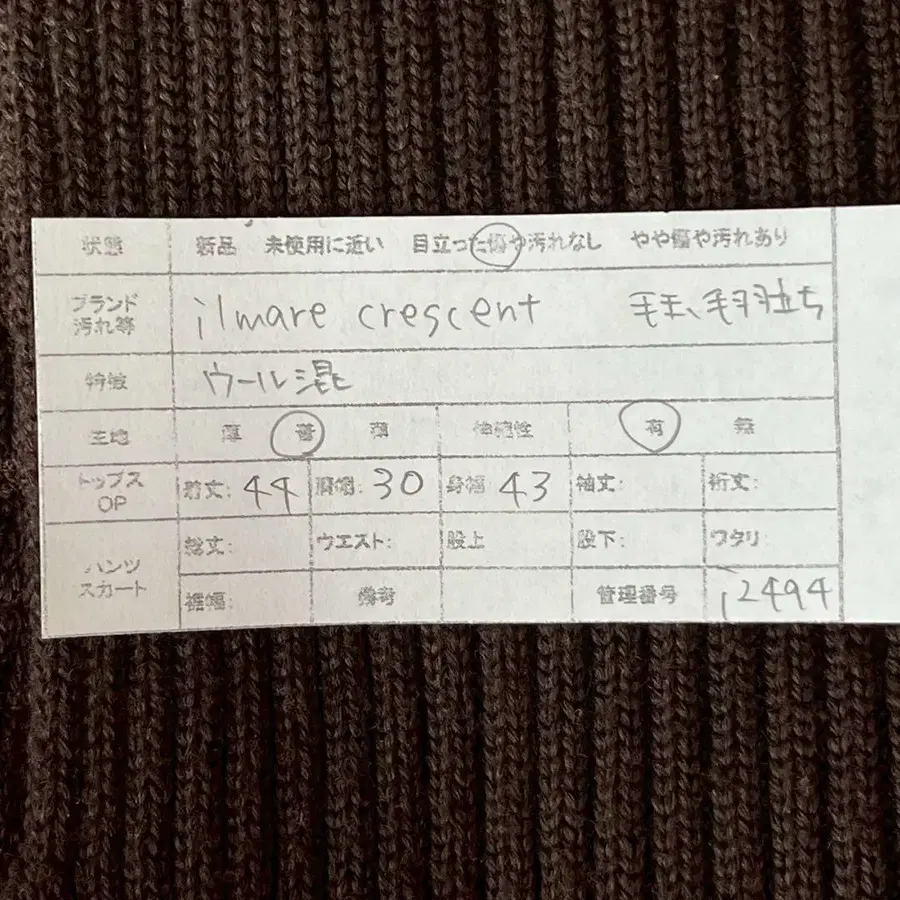 状態 新品 未使用に近い 目立った傷や汚れなし やや傷や汚れあり
ブランド 汚れ等 ilmare crescent 毛玉、毛羽立ち
特徴 ウール混
生地 厚 普 薄 伸縮性 有 無
トップス OP 着丈: 44 肩幅: 30 身幅: 43 袖丈: 裄丈:
パンツ スカート 総丈: ウエスト: 股上 股下: ワタリ:
裾幅: 備考 管理番号 i2494